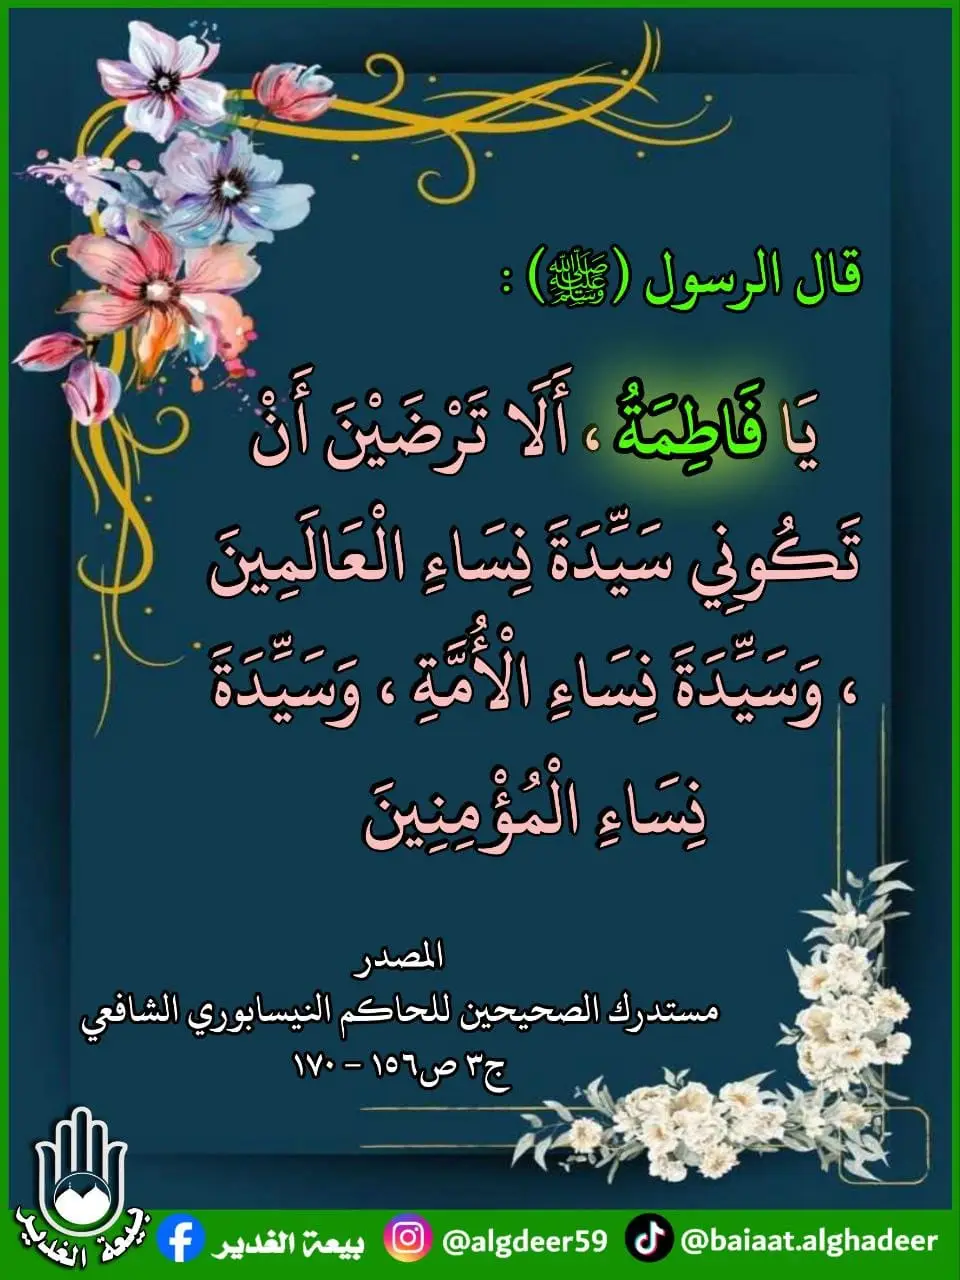 قال الرسول (ﷺ) :
يَا فَاطِمَةُ ، أَلَا تَرْضَيْنَ أَنْ
تَكُونِي سَيِّدَةَ نِسَاءِ الْعَالَمِينَ
، وَسَيِّدَةَ نِسَاءِ الْأُمَّةِ ، وَسَيِّدَةَ
نِسَاءِ الْمُؤْمِنِينَ
المصدر
مستدرك الصحيحين للحاكم النيسابوري الشافعي
ج٣ ص١٥٦ - ١٧٠
بيعة الغدير
بيعة الغدير @algdeer59 @baiaat.alghadeer